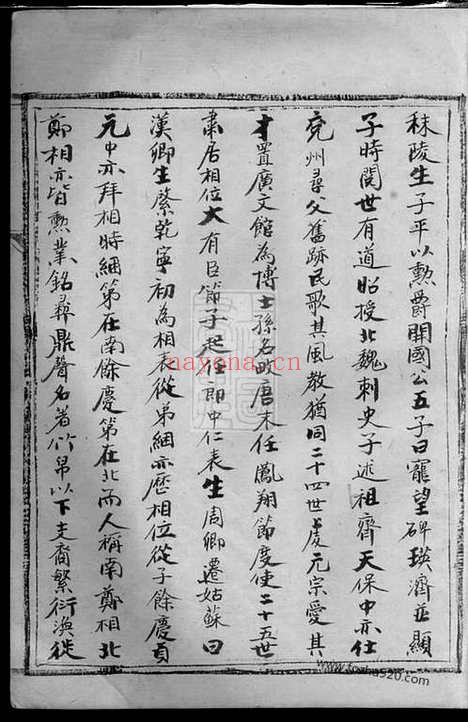 秣陵生子平以勲爵開國公五子曰寵望碑瑛濟並顯
子時閱世有道昭授北魏刺史子述祖齊天保中亦仕
兖州尋父舊跡民歌其風教猶同二十四世虔元宗愛其
才置廣文館為博士孫名畋唐末任鳳翔節度使二十五世
肅居相位大有臣節子起經郎中仁表生周卿遷姑蘇曰
漢卿生綮乾寧初為相表從弟絪亦歷相位從子餘慶貞
元中亦拜相時絪第在南餘慶第在北而人稱南鄭相北
鄭相亦皆勲業銘彞鼎聲名著竹帛以下支裔繁衍渙徙
nayona.cn